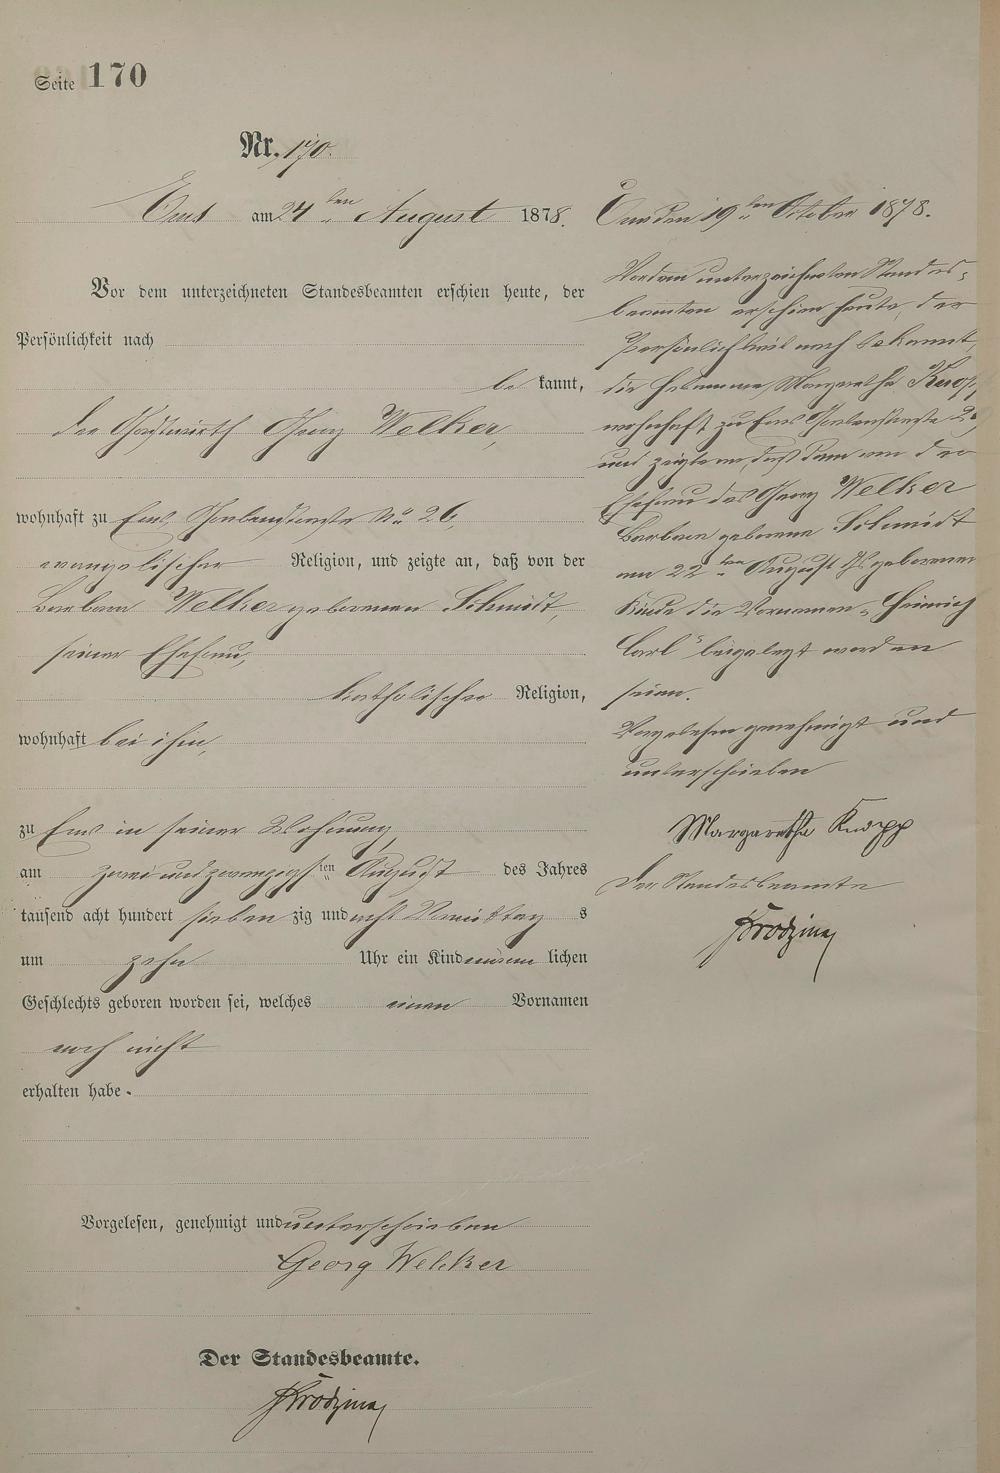 Seite 170
Nr. 170.
Ems am 24ten August 1878.
Vor dem unterzeichneten Standesbeamten erschien heute, der
Persönlichkeit nach
be kannt,
der Gastwirth Georg Welker,
wohnhaft zu Ems, No 26,
evangelischer Religion, und zeigte an, daß von der
Barbara Welker geborenen Schmidt,
seiner Ehefrau,
katholischer Religion,
wohnhaft bei ihm,
zu Ems in seiner Wohnung,
am zwei und zwanzigsten August des Jahres
tausend acht hundert sieben zig und acht Vormittags
um zehn Uhr ein Kind männlichen
Geschlechts geboren worden sei, welches einen Vornamen
noch nicht
erhalten habe.
Vorgelesen, genehmigt und unterschrieben
Georg Welker
Der Standesbeamte.
Ems den 19ten October 1878.
Vor dem unterzeichneten Standes-
beamten erschien heute, der
Persönlichkeit nach bekannt,
die Hebamme Margaretha Knopp
wohnhaft zu Ems
und zeigte an, daß dem von der
Ehefrau des Georg Welker
Barbara geborene Schmidt
am 22ten August geborenen
Kinde die Vornamen „Heinrich
Carl“ beigelegt worden
seien.
Vorgelesen genehmigt und
unterschrieben
Margaretha Knopp
Der Standesbeamte